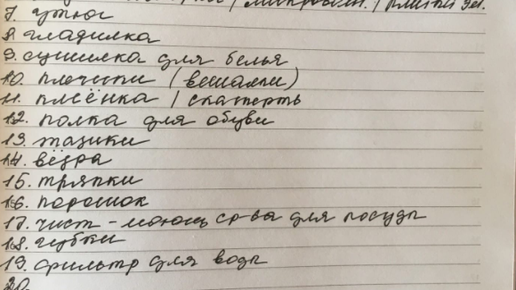 / микроволн. / плитка эл.
7. утюг
8. гладилка
9. сушилка для белья
10. плечики (вешалки)
11. плёнка / скатерть
12. полка для обуви
13. тазики
14. вёдра
15. тряпки
16. порошок
17. чист-моющ ср-ва для посуды
18. губки
19. фильтр для воды
20.